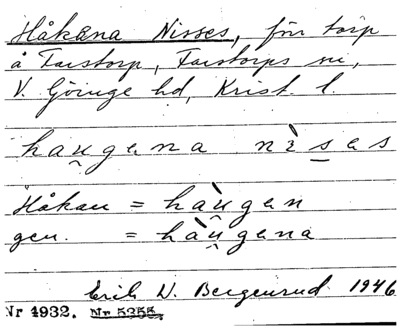 Håkana Nisses, förr torp
å Farstorp, Farstorps sn,
V. Göinge hd, Krist. l.
hau̯gena nìs̲es
Håkan = hàu̯gen
gen. = hàu̯gena
Erik N. Bergenrud 1946
Nr 4932. Nr 5255.